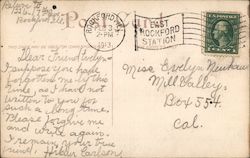 Return to
Rockford, Ill.
ROCKFORD, ILL.
FEB 3
2-PM
1913
EAST
ROCKFORD
STATION
Dear Friend Evelyn—
I suppose you have
forgotten me by this
time, as I have not
written to you for
such a long time.
Please forgive me
and write again.
I remain your true
friend Carlson
Miss Evelyn Neuhaus
Mill Valley,
Box 554.
Cal.